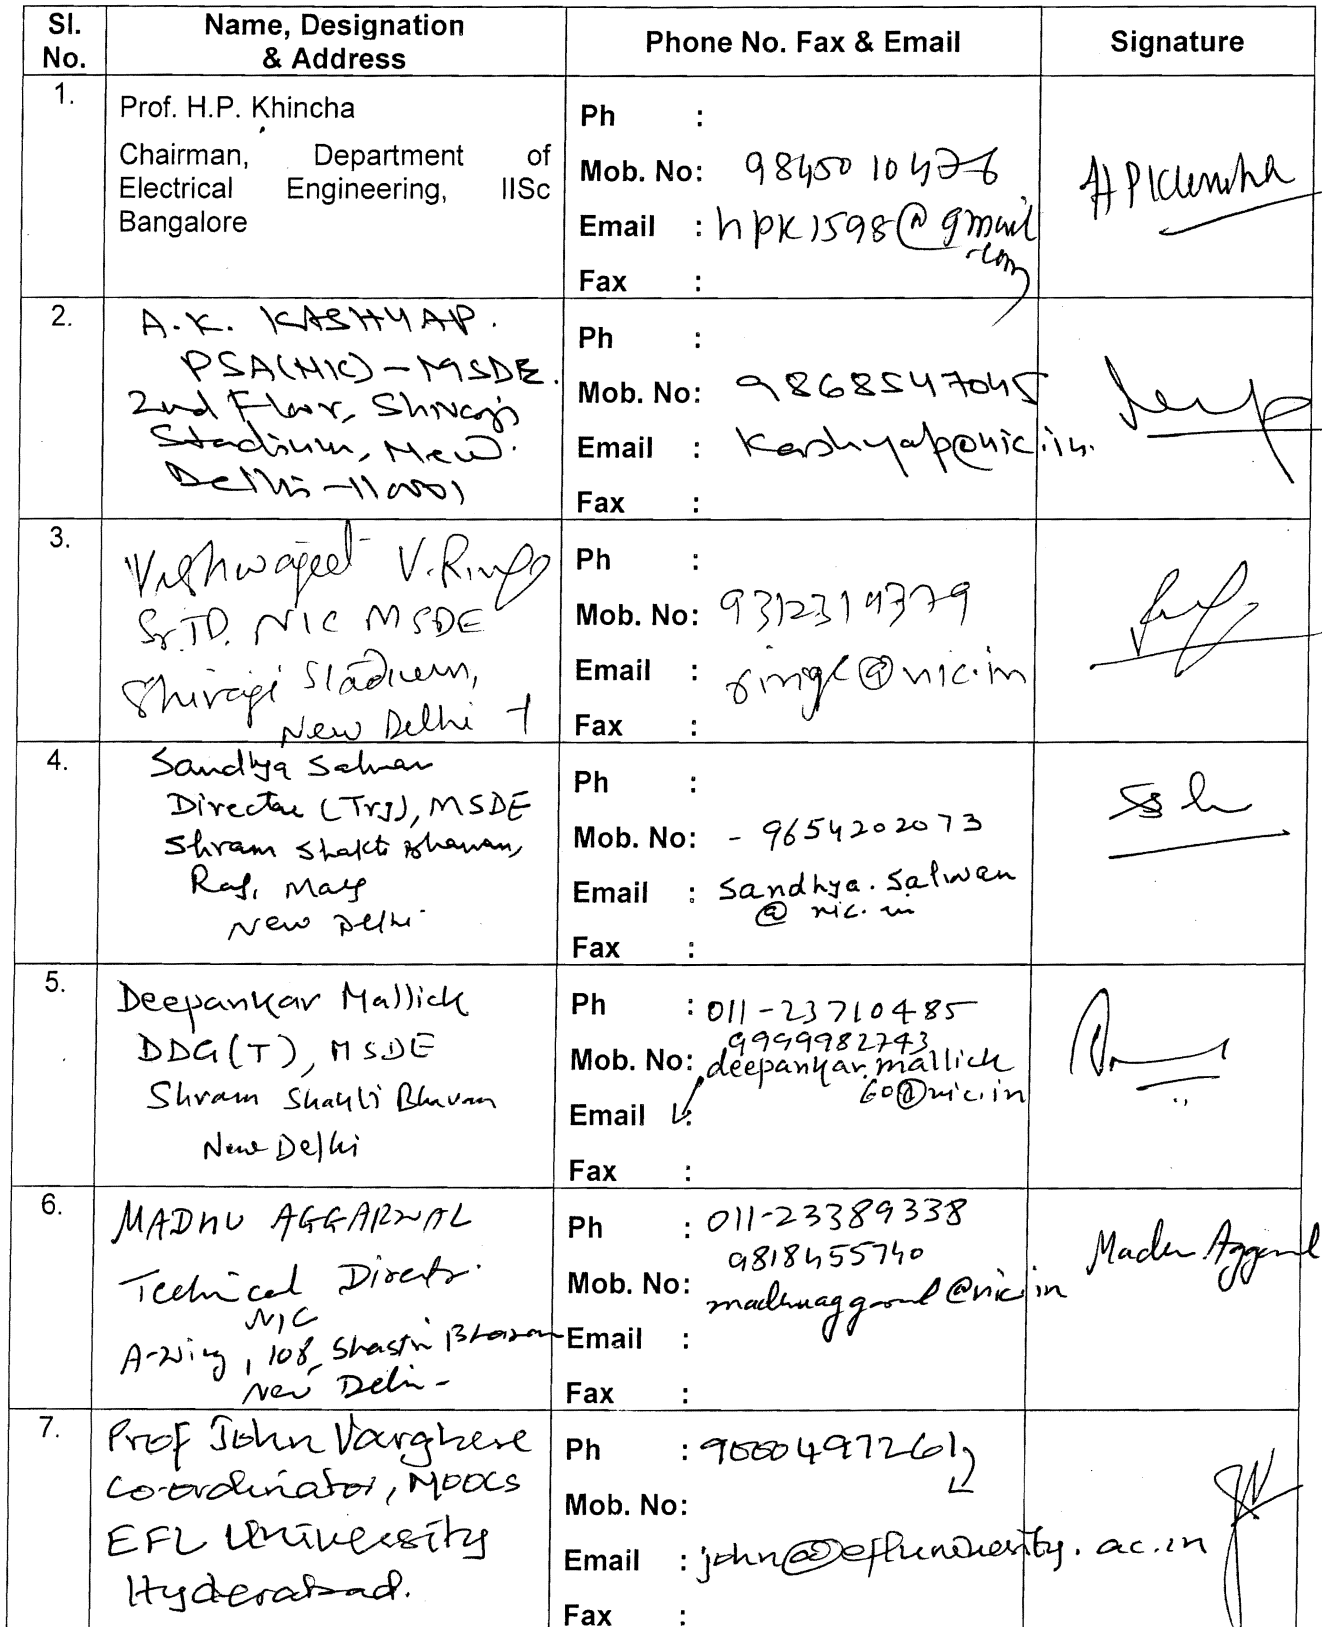 Sl. No.
Name, Designation & Address
Phone No. Fax & Email
Signature
1.
Prof. H.P. Khincha
Chairman, Department of
Electrical Engineering, IISc
Bangalore
Ph :
Mob. No: 9845010476
Email : hpk1598@gmail
.com
Fax :
2.
A.K. KASHYAP.
PSA(NIC)-MSDE.
2nd Floor, Shivaji
Stadium, New
Delhi-110001
Ph :
Mob. No: 9868547045
Email : kashyap@nic.in.
Fax :
3.
Vishwajeet V. Ringe
Sr.TD. NIC MSDE
Shivaji Stadium,
New Delhi-1
Ph :
Mob. No: 9312319379
Email : ringe@nic.in
Fax :
4.
Sandhya Salwan
Director (Trg), MSDE
Shram Shakti Bhawan,
Rafi Marg
New Delhi
Ph :
Mob. No: - 9654202073
Email : Sandhya.Salwan
@nic.in
Fax :
5.
Deepankar Mallick
DDG(T), MSDE
Shram Shakti Bhavan
New Delhi
Ph : 011-23710485
9999982743
Mob. No: deepankar.mallick
60@nic.in
Email :
Fax :
6.
MADHU AGGARWAL
Technical Director
NIC
A-Wing, 108, Shastri Bhawan
New Delhi-
Ph : 011-23389338
9818455740
Mob. No: madhuaggarwal@nic.in
Email :
Fax :
Madhu Aggarwal
7.
Prof John Varghese
Co-ordinator, MOOCS
EFL University
Hyderabad.
Ph : 9000497261
Mob. No:
Email : john@efluniversity.ac.in
Fax :